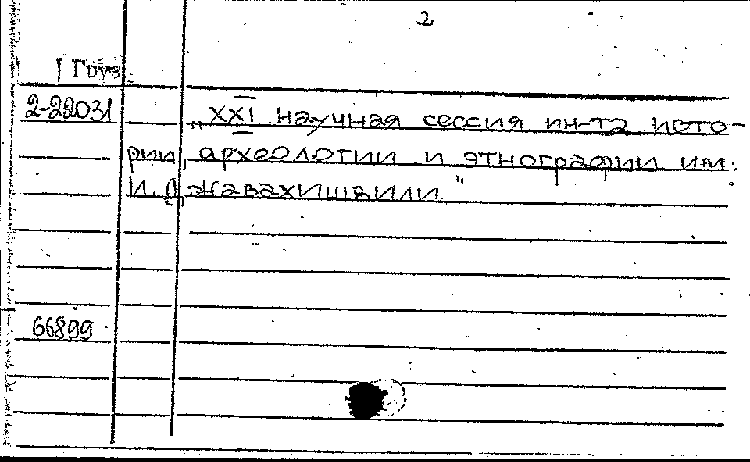 2
Груз.
2-22031
„XXI научная сессия ин-та исто-
рии, археологии и этнографии им.
И. Джавахишвили"
66899